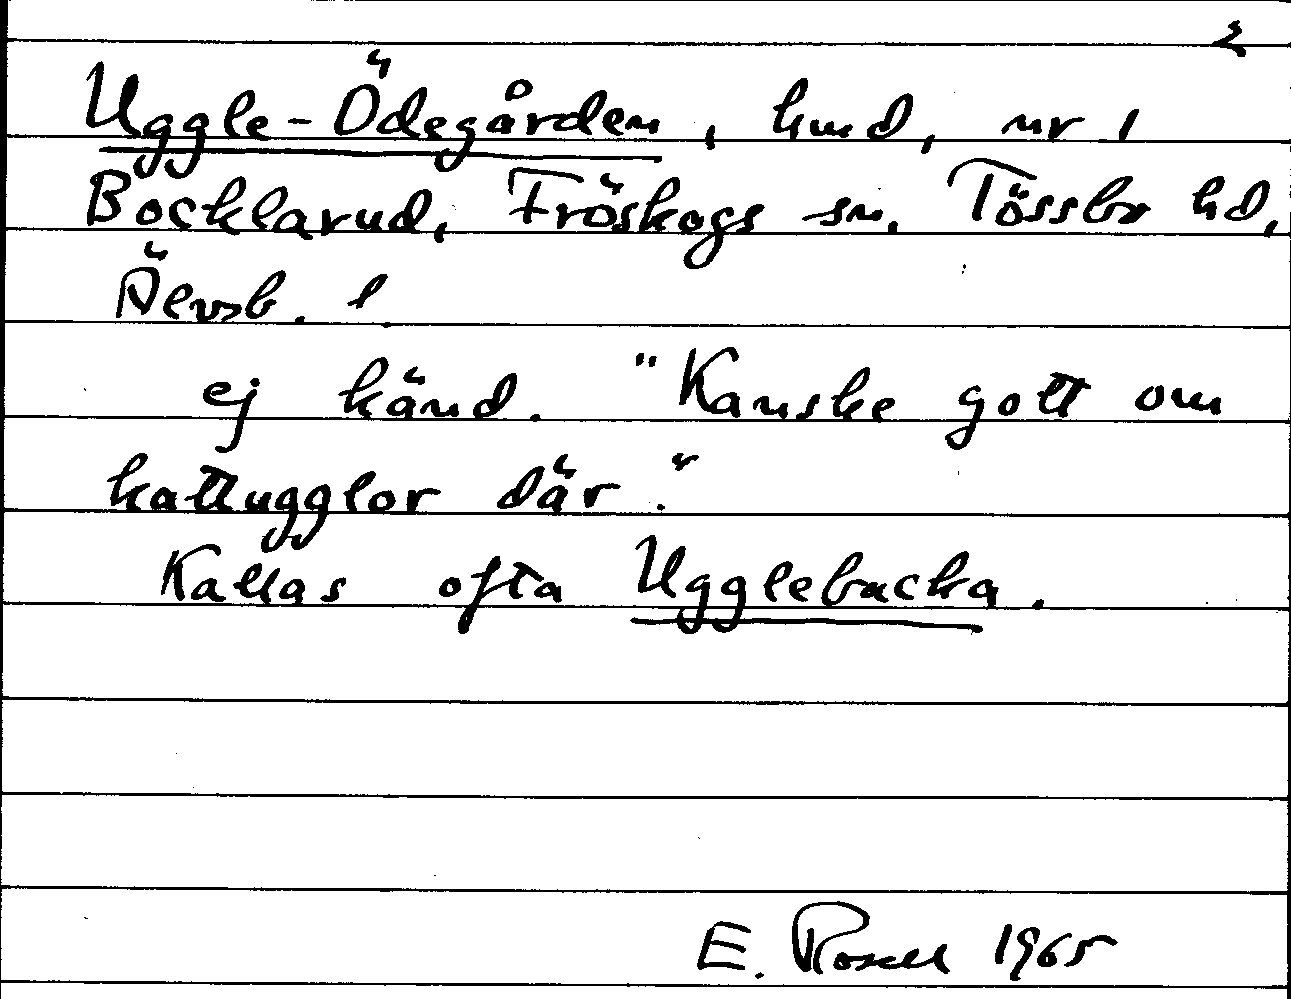 2
Uggle-Ödegården, hmd, nr 1
Bocklarud, Fröskogs sn. Tössbo hd,
Älvsb. l
ej känd. "Kanske gott om
kattugglor där."
Kallas ofta Ugglebacka.
E. Rosell 1965